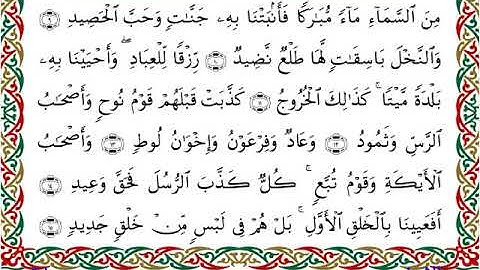 مِنَ السَّمَآءِ مَآءً مُّبَٰرَكًا فَأَنۢبَتْنَا بِهِۦ جَنَّٰتٍ وَحَبَّ الْحَصِيدِ ۝٩
وَالنَّخْلَ بَاسِقَٰتٍ لَّهَا طَلْعٌ نَّضِيدٌ ۝١٠ رِّزْقًا لِّلْعِبَادِ ۖ وَأَحْيَيْنَا بِهِۦ
بَلْدَةً مَّيْتًا ۚ كَذَٰلِكَ الْخُرُوجُ ۝١١ كَذَّبَتْ قَبْلَهُمْ قَوْمُ نُوحٍ وَأَصْحَٰبُ
الرَّسِّ وَثَمُودُ ۝١٢ وَعَادٌ وَفِرْعَوْنُ وَإِخْوَٰنُ لُوطٍ ۝١٣ وَأَصْحَٰبُ
الْأَيْكَةِ وَقَوْمُ تُبَّعٍ ۚ كُلٌّ كَذَّبَ الرُّسُلَ فَحَقَّ وَعِيدِ ۝١٤
أَفَعَيِينَا بِالْخَلْقِ الْأَوَّلِ ۚ بَلْ هُمْ فِى لَبْسٍ مِّنْ خَلْقٍ جَدِيدٍ ۝١٥